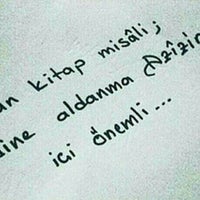 kitap misâli ;
aldanma Azizim
içi önemli...